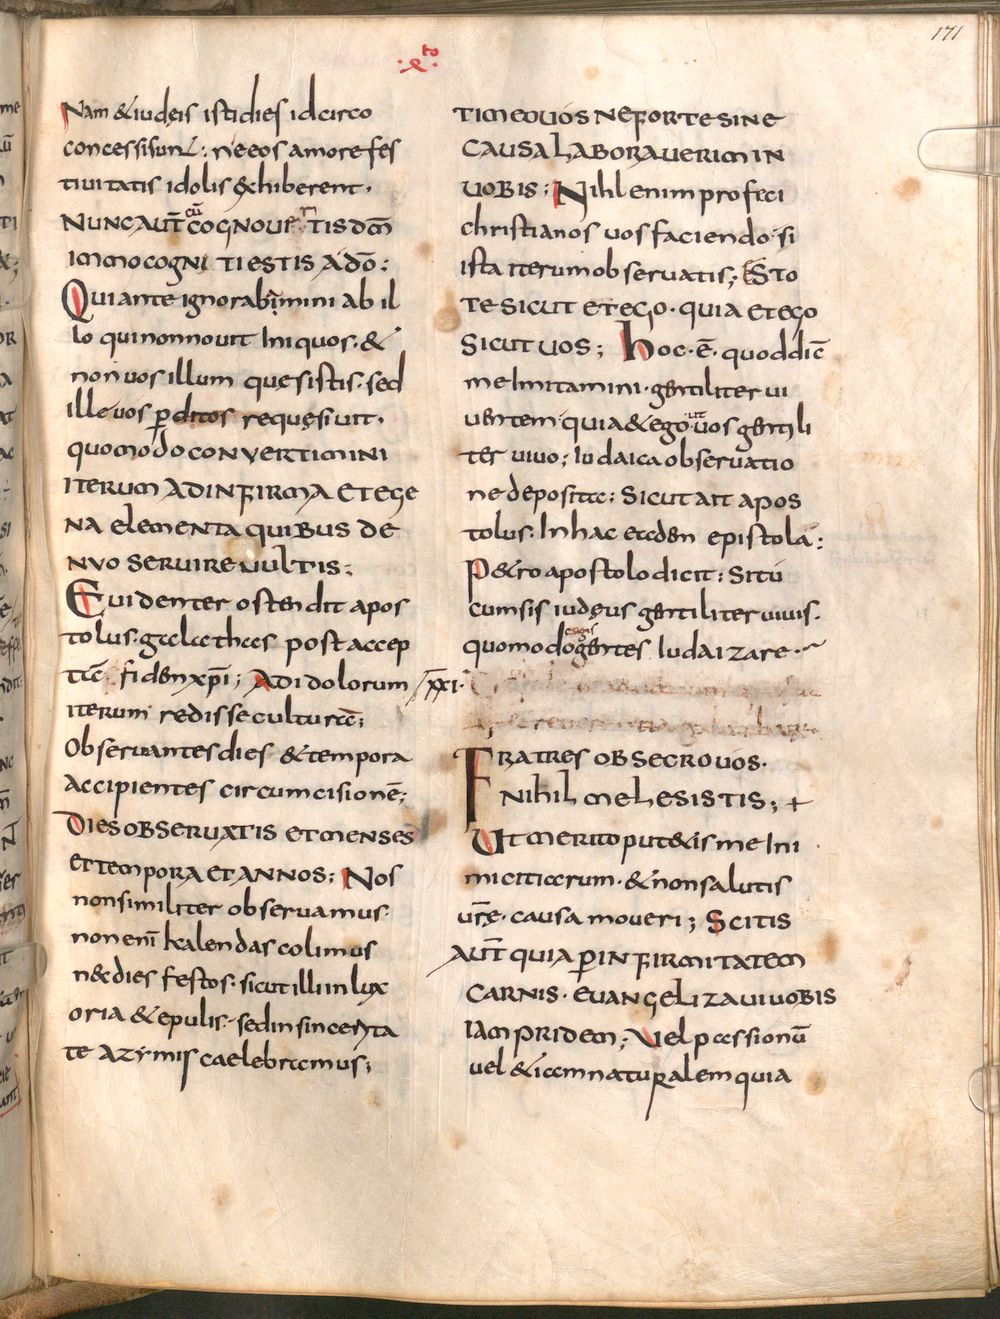 171
·x·to
Nam &iudęis isti dies idcirco
concessi sunt: ne eos amore fes
tiuitatis idolis exhiberent.
NUNC AUT̄ cū COGNOUERITIS DM̄
IMMO COGNITI ESTIS A DŌ:
Qui ante ignorabamini ab il
lo qui non nouit Iniquos. &
non uos illum quesistis. sed
ille uos ꝑditos requęsiuit.
QUOMODO CONVERTIMINI
ITERUM AD INFIRMA ET EGE
NA ELEMENTA QUIBUS DE
NVO SERUIRE UULTIS:
Euidenter ostendit apos
tolus. galathas post accep
tā fidem xp̄i; Ad idolorum
iterum redisse culturā;
Obseruantes dies & tempora
accipientes circumcisionē;
DIES OBSERUATIS ET MENSES
ET TEMPORA ET ANNOS: Nos
non similiter obseruamus
non enī kalendas colimus
n& dies festos. sicut illi in lux
oria & epulis. sed in sincerita
te azymis caelebramus;
TIMEO UOS NE FORTE SINE
CAUSA LABORAUERIM IN
UOBIS; Nihl enim profeci
christianos uos faciendo. si
ista iterum obseruatis; ESTO
TE SICUT ET EGO. QUIA ET EGO
SICUT UOS; hoc. ē. quod dic̄
me Imitamini. gentiliter ui
uentem quia & ego ut uos gentili
ter uiuo; Iudaica obseruatio
ne deposita: Sicut ait apos
tolus. In hac eadem epistola:
P&ro apostolo dicit: Si tu
cum sis iudęus gentiliter uiuis.
quomodo cogis gentes Iudaizare.
xxi.
FRATRES OBSECRO UOS.
NIHIL ME LESISTIS; +
Ut merito put&is me Ini
miciciarum. & non salutis
ur̄ę. causa moueri; SCITIS
AUT̄ QUIA ꝑ INFIRMITATEM
CARNIS. EUANGELIZAUI UOBIS
IAM PRIDEM; Vel passionū
uel &iam naturalem quia